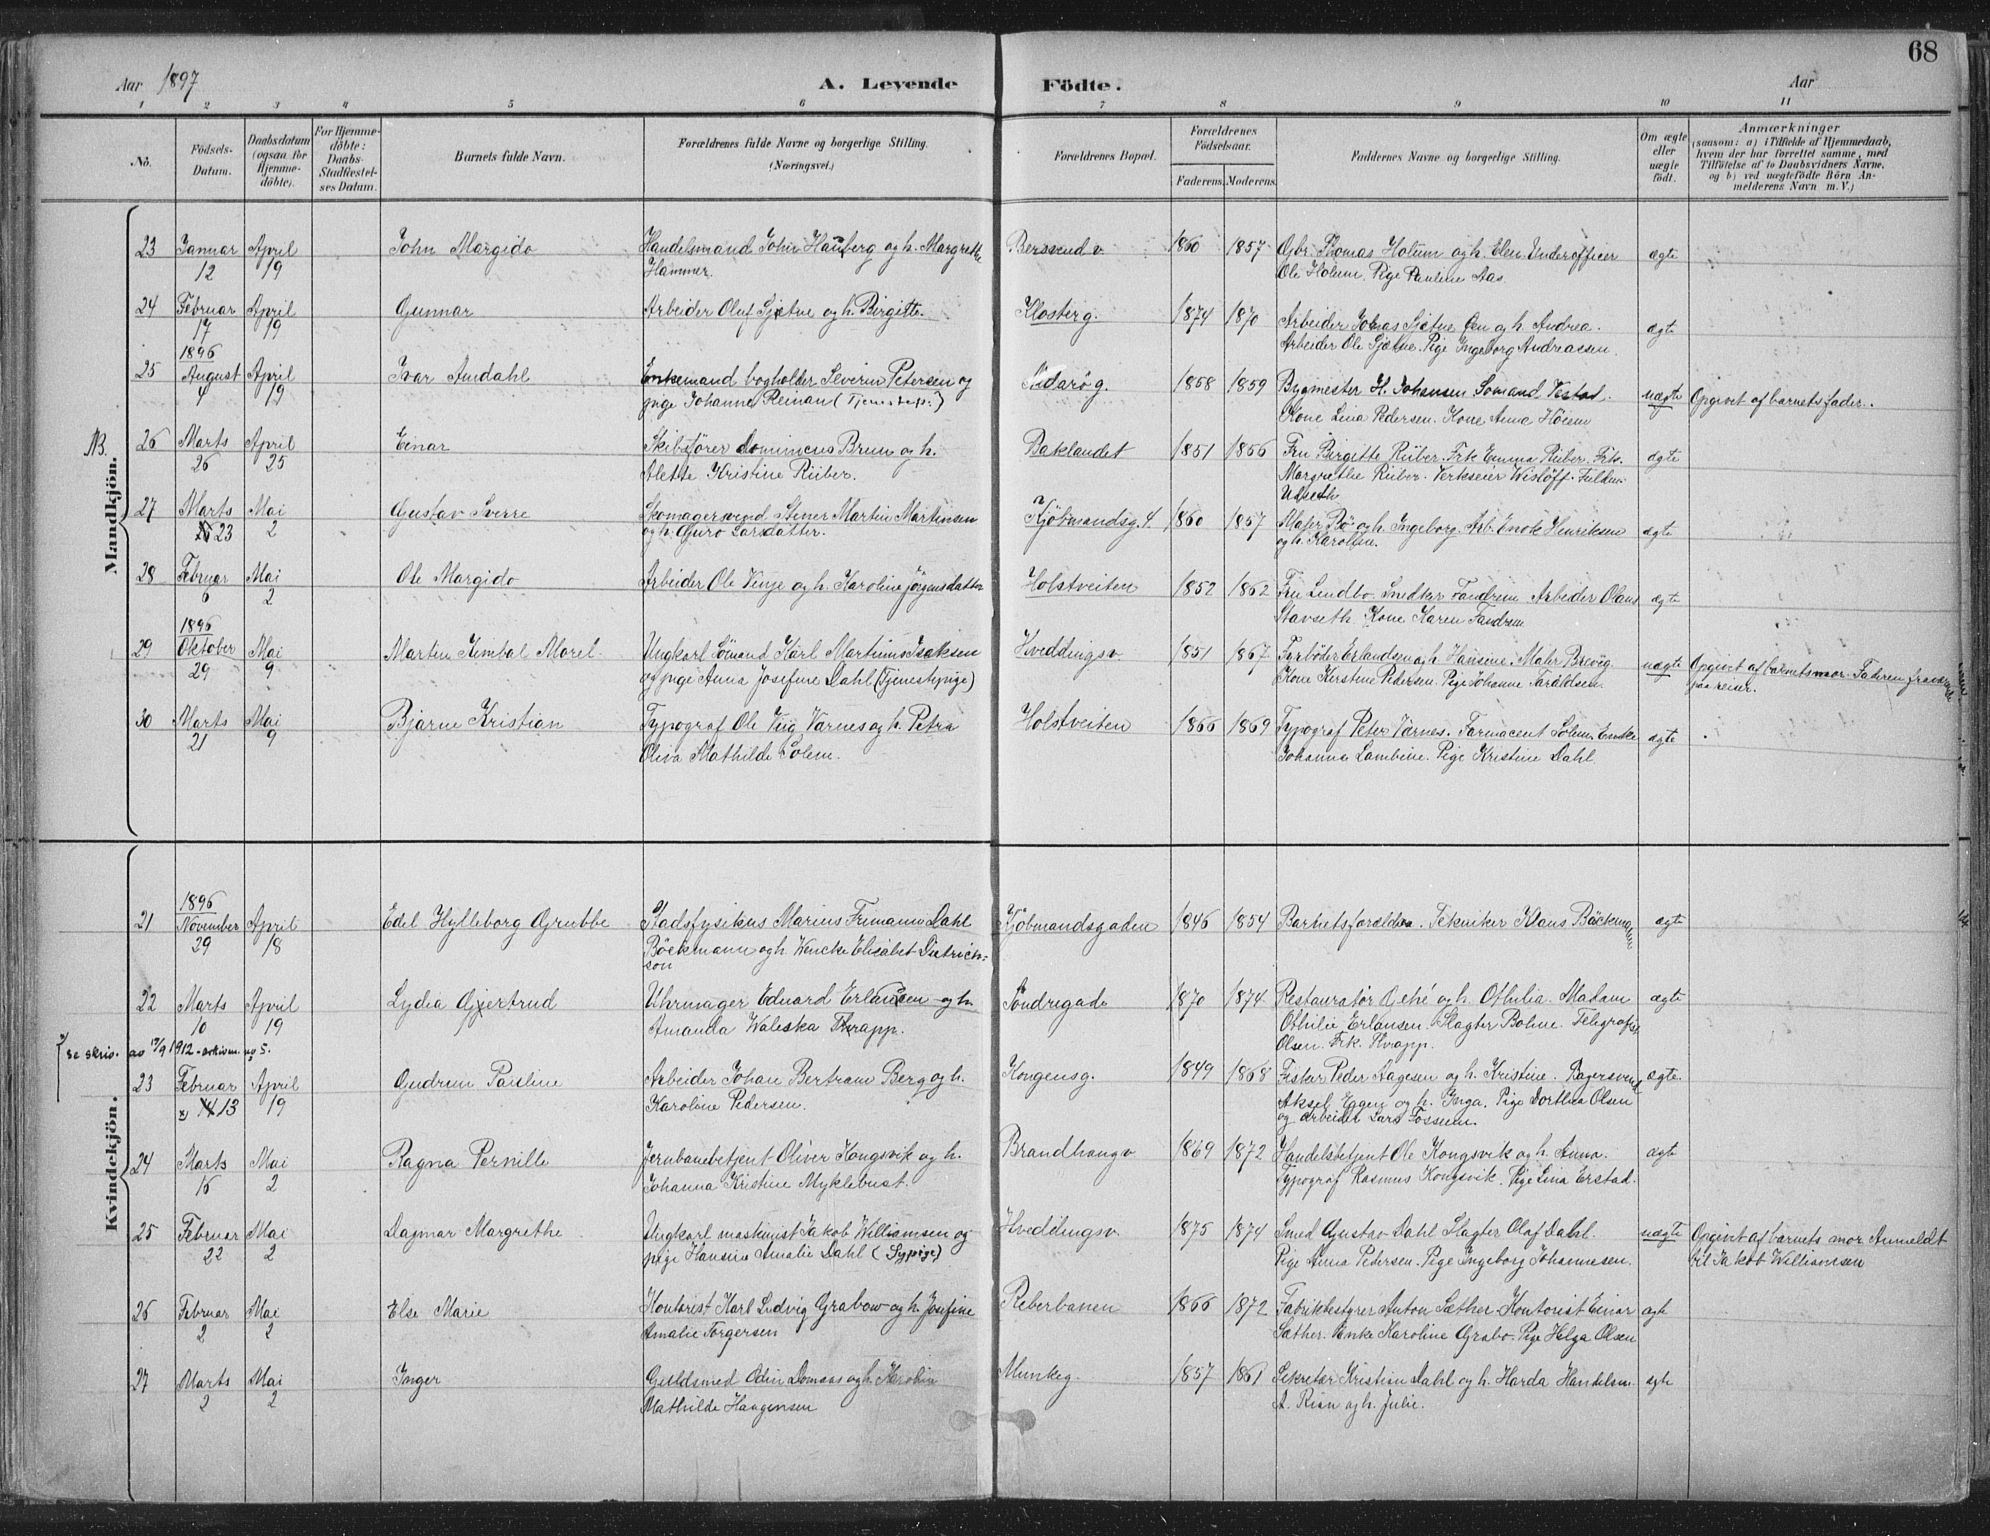 68
Aar 1897 A. Levende Födte. Aar
1 2 3 4 5 6 7 8 9 10 11
No. Födsels-Datum. Daabsdatum (ogsaa for Hjemme-döbte). For Hjemme-döbte: Daabs-Stadfæstel-ses Datum. Barnets fulde Navn. Forældrenes fulde Navne og borgerlige Stilling. (Næringsvei.) Forældrenes Bopæl. Forældrenes Födselsaar. Faderens. Moderens. Faddernes Navne og borgerlige Stilling. Om ægte eller uægte födt. Anmærkninger (saasom: a) i Tilfælde af Hjemmedaab, hvem der har forrettet samme, med Tilföielse af to Daabsvidners Navne, og b) ved uægtefödte Börn An-melderens Navn m. V.)
Mandkjön.
23 Januar April John Margido Handelsmand John Hauberg og h. Margrethe Bersvendv 1860 1857 Gbr. Thomas Holum og h. Elen. Underofficer ægte
12 19 Hammer. Ole Holum. Pige Pauline Aas.
24 Februar April Gunnar Arbeider Oluf Sjætne og h. Birgitte. Klosterg. 1874 1870 Arbeider Jonas Sjætne og h. Andrea. ægte
17 19 Arbeider Ole Sjætne. Pige Ingeborg Andreasen.
1896
25 August April Ivar Amdahl Enkemand bogholder Severin Petersen og Nidarög. 1858 1859 Bygmester H. Johansen Sömand Vestad. uægte Opgivet af barnets fader.
4 19 pige Johanne Reman (Tjenestep.) Kone Lina Pedersen. Kone Anna Höiem
NB. 26 Marts April Einar Skibsförer Domincus Bruun og h. Baklandet 1851 1856 Fru Birgitte Rüber. Frk Emma Rüber. Frk. ægte
26 25 Alette Kristine Rüber. Margrethe Rüber. Verkseier Wislöff. Fuldm.
Udseth
27 Marts Mai Gustav Sverre Skomagersvend Stener Martin Martinsen Kjöbmandsg. 4. 1860 1857 Maler Bö og h. Ingeborg. Arb. Enok Henriksen ægte
23 2 og h. Guro Larsdatter. og h. Karoline.
28 Februar Mai Ole Margido Arbeider Ole Vinje og h. Karoline Jörgensdatter Holstveiten 1852 1862 Fru Lindbo. Snedker Fandrem. Arbeider Olaus ægte
6 2 Stavseth. Kone Karen Fandrem
1896
29 Oktober Mai Martin Kimbal Morel. Ungkarl Sömand Karl Martinus Isaksen Hveddingsv 1851 1867 Fyrböder Erlandsen og h. Hansine. Maler Brevig uægte Opgivet af barnets mor. Faderen fraværende
29 9 og pige Anna Josefine Dahl (Tjenestepige) Kone Kirstine Pedersen. Pige Johanne Taraldsen. paa reiser.
30 Marts Mai Bjarne Kristian Typograf Ole Vig Værnes og h. Petra Holstveiten 1866 1869 Typograf Peter Værnes. Farmacent Solem. Enke ægte
21 9 Oliva Mathilde Solem. Johanna Lambine. Pige Kristine Dahl.
Kvindekjön.
1896
21 November April Edel Hylleborg Grubbe Stadsfysikus Marius Frimann Dahl Kjöbmandsgaden 1846 1854 Barnetsforældre. Tekniker Klaus Böckmann ægte
29 18 Böckmann og h. Wencke Elisabet Dietrich-
son
22 Marts April Lydia Gjertrud Uhrmager Eduard Erlansen og h. Söndregade 1870 1874 Restauratör Gehé og h. Othilia. Madam ægte
10 19 Amanda Waleska Thrapp. Othilie Erlansen. Slagter Bohne. Telegrafist
Olsen. Frk. Thrapp.
se skriv. av 17/9 1912 - arkivnr. no 5.
23 Februar April Gudrun Pauline Arbeider Johan Bertram Berg og h. Kongensg. 1849 1868 Fisker Peder Aagesen og h. Kristine. Bagersvend ægte.
13 19 Karoline Pedersen. Aksel Eggen og h. Inga. Pige Dorthea Olsen
og arbeider Lars Fossem.
24 Marts Mai Ragna Pernille Jernbanebetjent Oliver Kongsvik og h. Brandhaugv 1869 1872 Handelsbetjent Ole Kongsvik og h. Anna. ægte
16 2 Johanna Kristine Myklebust. Typograf Rasmus Kongsvik. Pige Lina Erstad.
25 Februar Mai Dagmar Margrethe Ungkarl maskinist Jakob Williamsen og Hveddingsv. 1875 1874 Smed Gustav Dahl Slagter Olaf Dahl. uægte Opgivet af barnets mor Anmeldt
22 2 pige Hansine Amalie Dahl (Sypige) Pige Anna Pedersen. Pige Ingeborg Johannesen. til Jakob Williamsen
26 Februar Mai Else Marie Kontorist Karl Ludvig Grabow og h. Josefine Reberbanen 1866 1872 Fabrikbestyrer Anton Sæther. Kontorist Einar ægte
2 2 Amalie Torgersen Sæther. Enke Karoline Grabo. Pige Helga Olsen
27 Marts Mai Inger Guldsmed Odin Domaas og h. Karolin Munkeg. 1857 1861 Sekretær Kristian Dahl og h. Harda Handelsm. ægte
2 2 Mathilde Haagensen A. Rian og h. Julie.